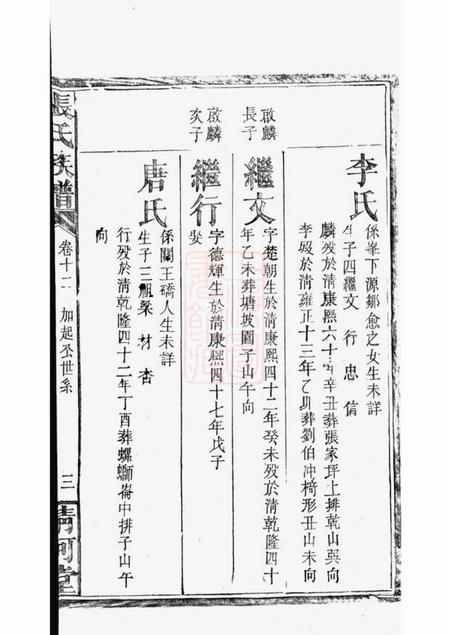 李氏
係峯下源鄒愈之女生未詳
生子四繼文 行 忠 信
麟歿於清康熙六十年辛丑葬張家坪上排乾山巽向
李歿於清雍正十三年乙卯葬劉伯冲椅形丑山未向
啟麟長子
繼文
字楚朝生於清康熙四十二年癸未歿於清乾隆四十
年乙未葬塘坡園子山午向
啟麟次子
繼行
字德輝生於清康熙四十七年戊子
娶
唐氏
係關王礄人生未詳
生子三 樑 材 杏
行歿於清乾隆四十二年丁酉葬螺螄崙中排子山午
向
張氏族譜
卷十二
加起丕世系
三
清河堂